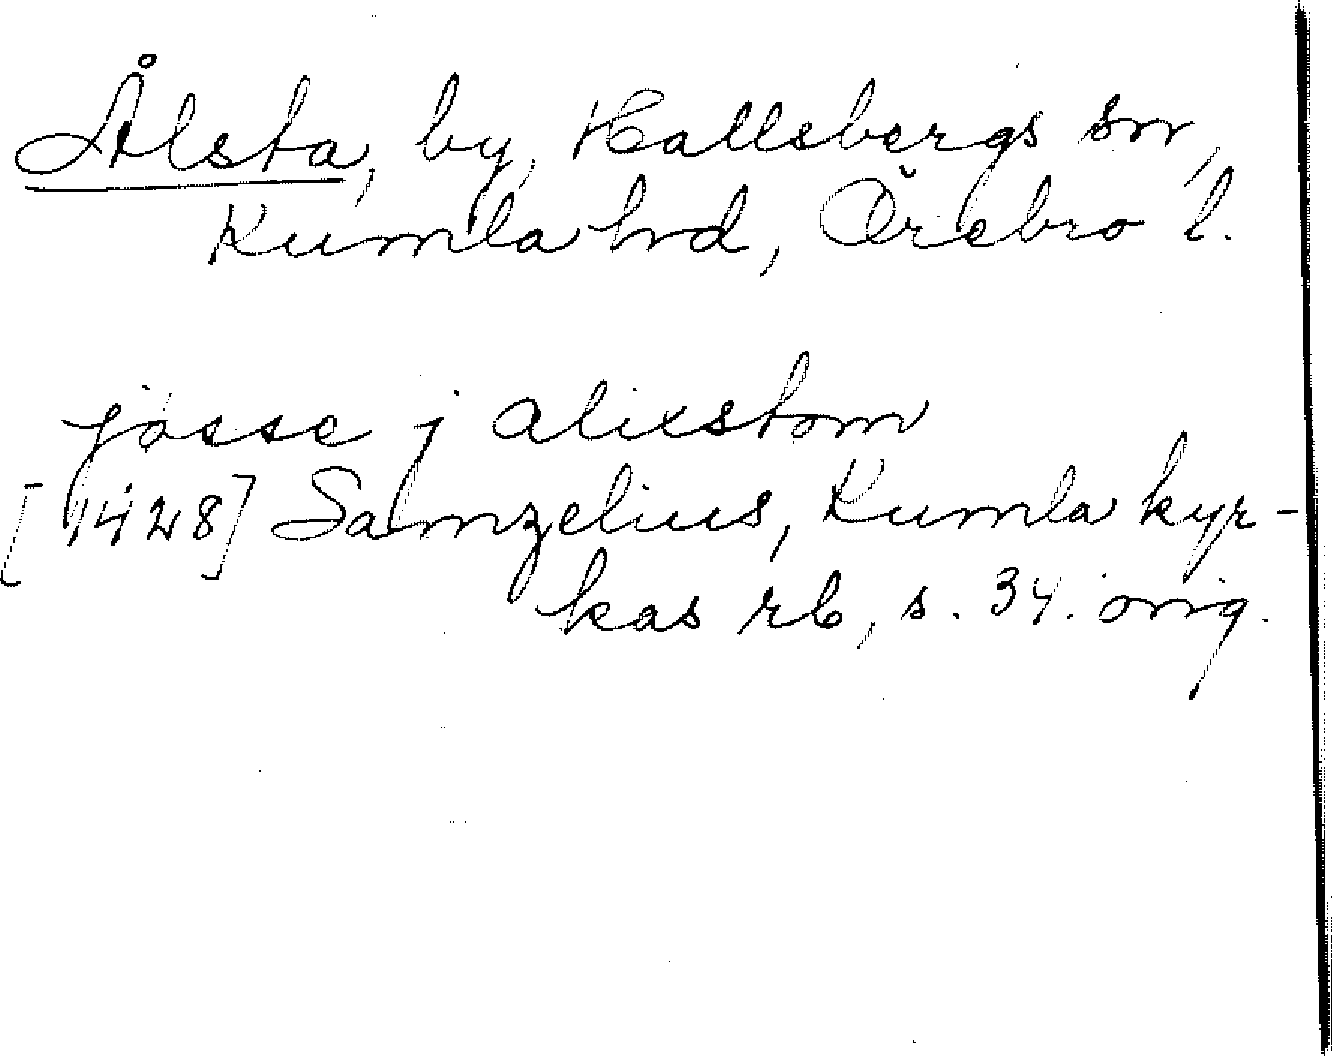 Ålsta, by, Hallsbergs sn,
Kumla hd, Örebro l.
josse j alixstom
[1428] Samzelius, Kumla kyr-
kas rb, s. 34. orig.